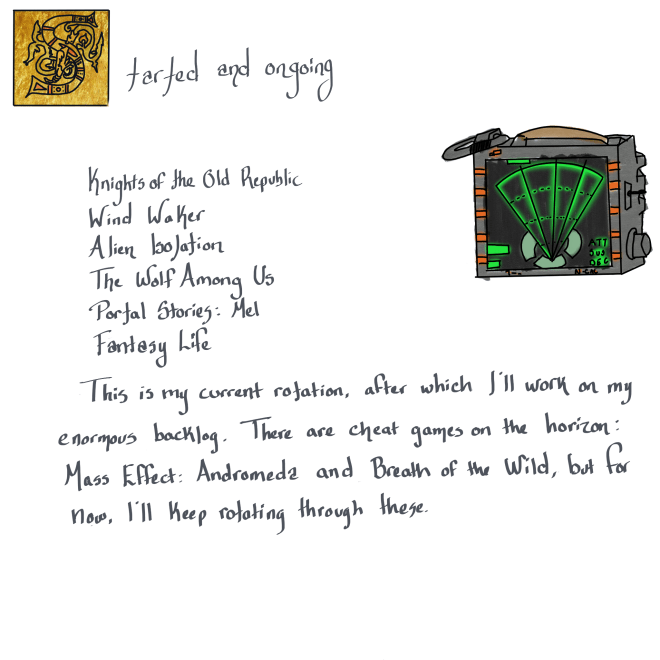 Started and ongoing
Knights of the Old Republic
Wind Waker
Alien Isolation
The Wolf Among Us
Portal Stories: Mel
Fantasy Life
This is my current rotation, after which I'll work on my
enormous backlog. There are cheat games on the horizon:
Mass Effect: Andromeda and Breath of the Wild, but for
now, I'll keep rotating through these.